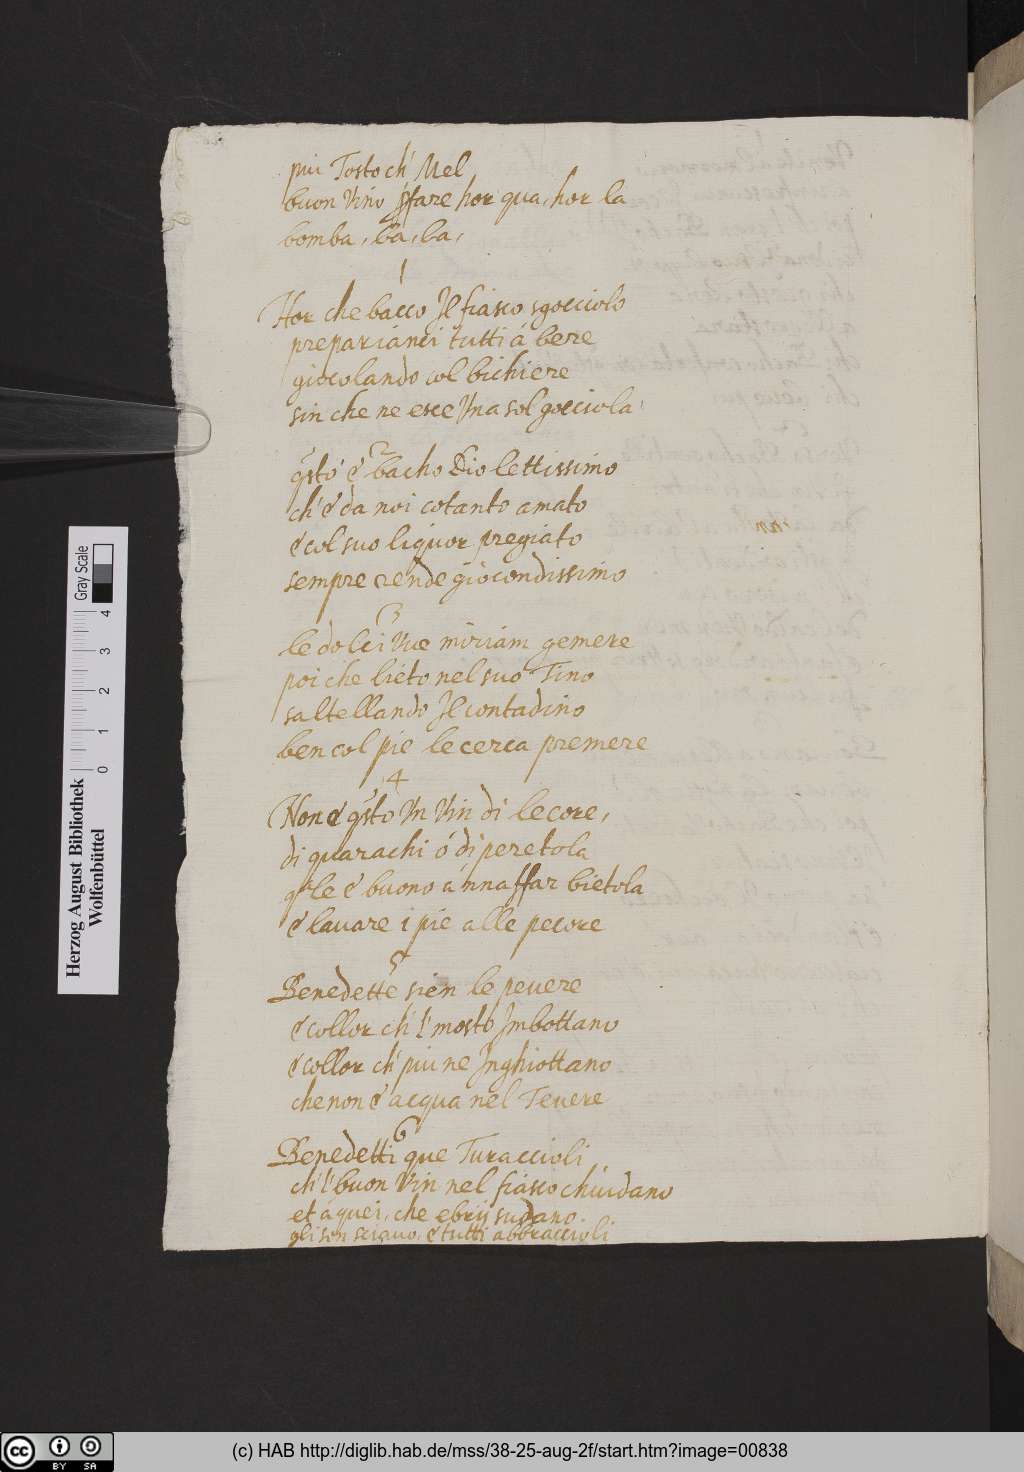 piu Tosto ch' Mel
buon Vino sfare hor qua, hor la
bomba, ba, ba,
1
Hor che bacco Il fiasco sgocciolo
prepariánci tutti á bere
giocolando col bichiere
sin che ne esce Vna sol gocciola
2
qsto é bacho Dio lettissimo
ch' é da noi cotanto amato
é col suo liquor pregiato
sempre rende giocondissimo
3
le dolci Vue miriam gemere
poi che liéto nel suo Tino
saltellando Il contadino
ben col pie le cerca premere
4
Non é qsto Vn Vin di lecore,
di quarachi ó di peretola
qle é buono á nnaffar bietola
é lauare i pie alle pecore
5
Benedette sien le peuere
é collor ch' l' mosto Imbottano
é collor ch' piu ne Inghiottano
che non é acqua nel Teuere
6
Benedetti que Turaccioli
ch' l' buon Vin nel fiasco chiudano
et á quei, che ebrij sudano.
gli sen sciauo, é tutti abbraccioli
Herzog August Bibliothek
Wolfenbüttel
Gray Scale
0 1 2 3 4
cc BY SA
(c) HAB http://diglib.hab.de/mss/38-25-aug-2f/start.htm?image=00838